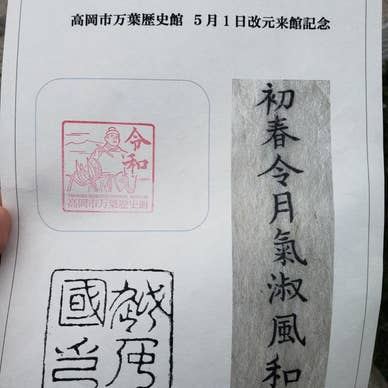 高岡市万葉歴史館 5月1日改元来館記念
令和
高岡市万葉歴史館
初春令月氣淑風和
越中
國印